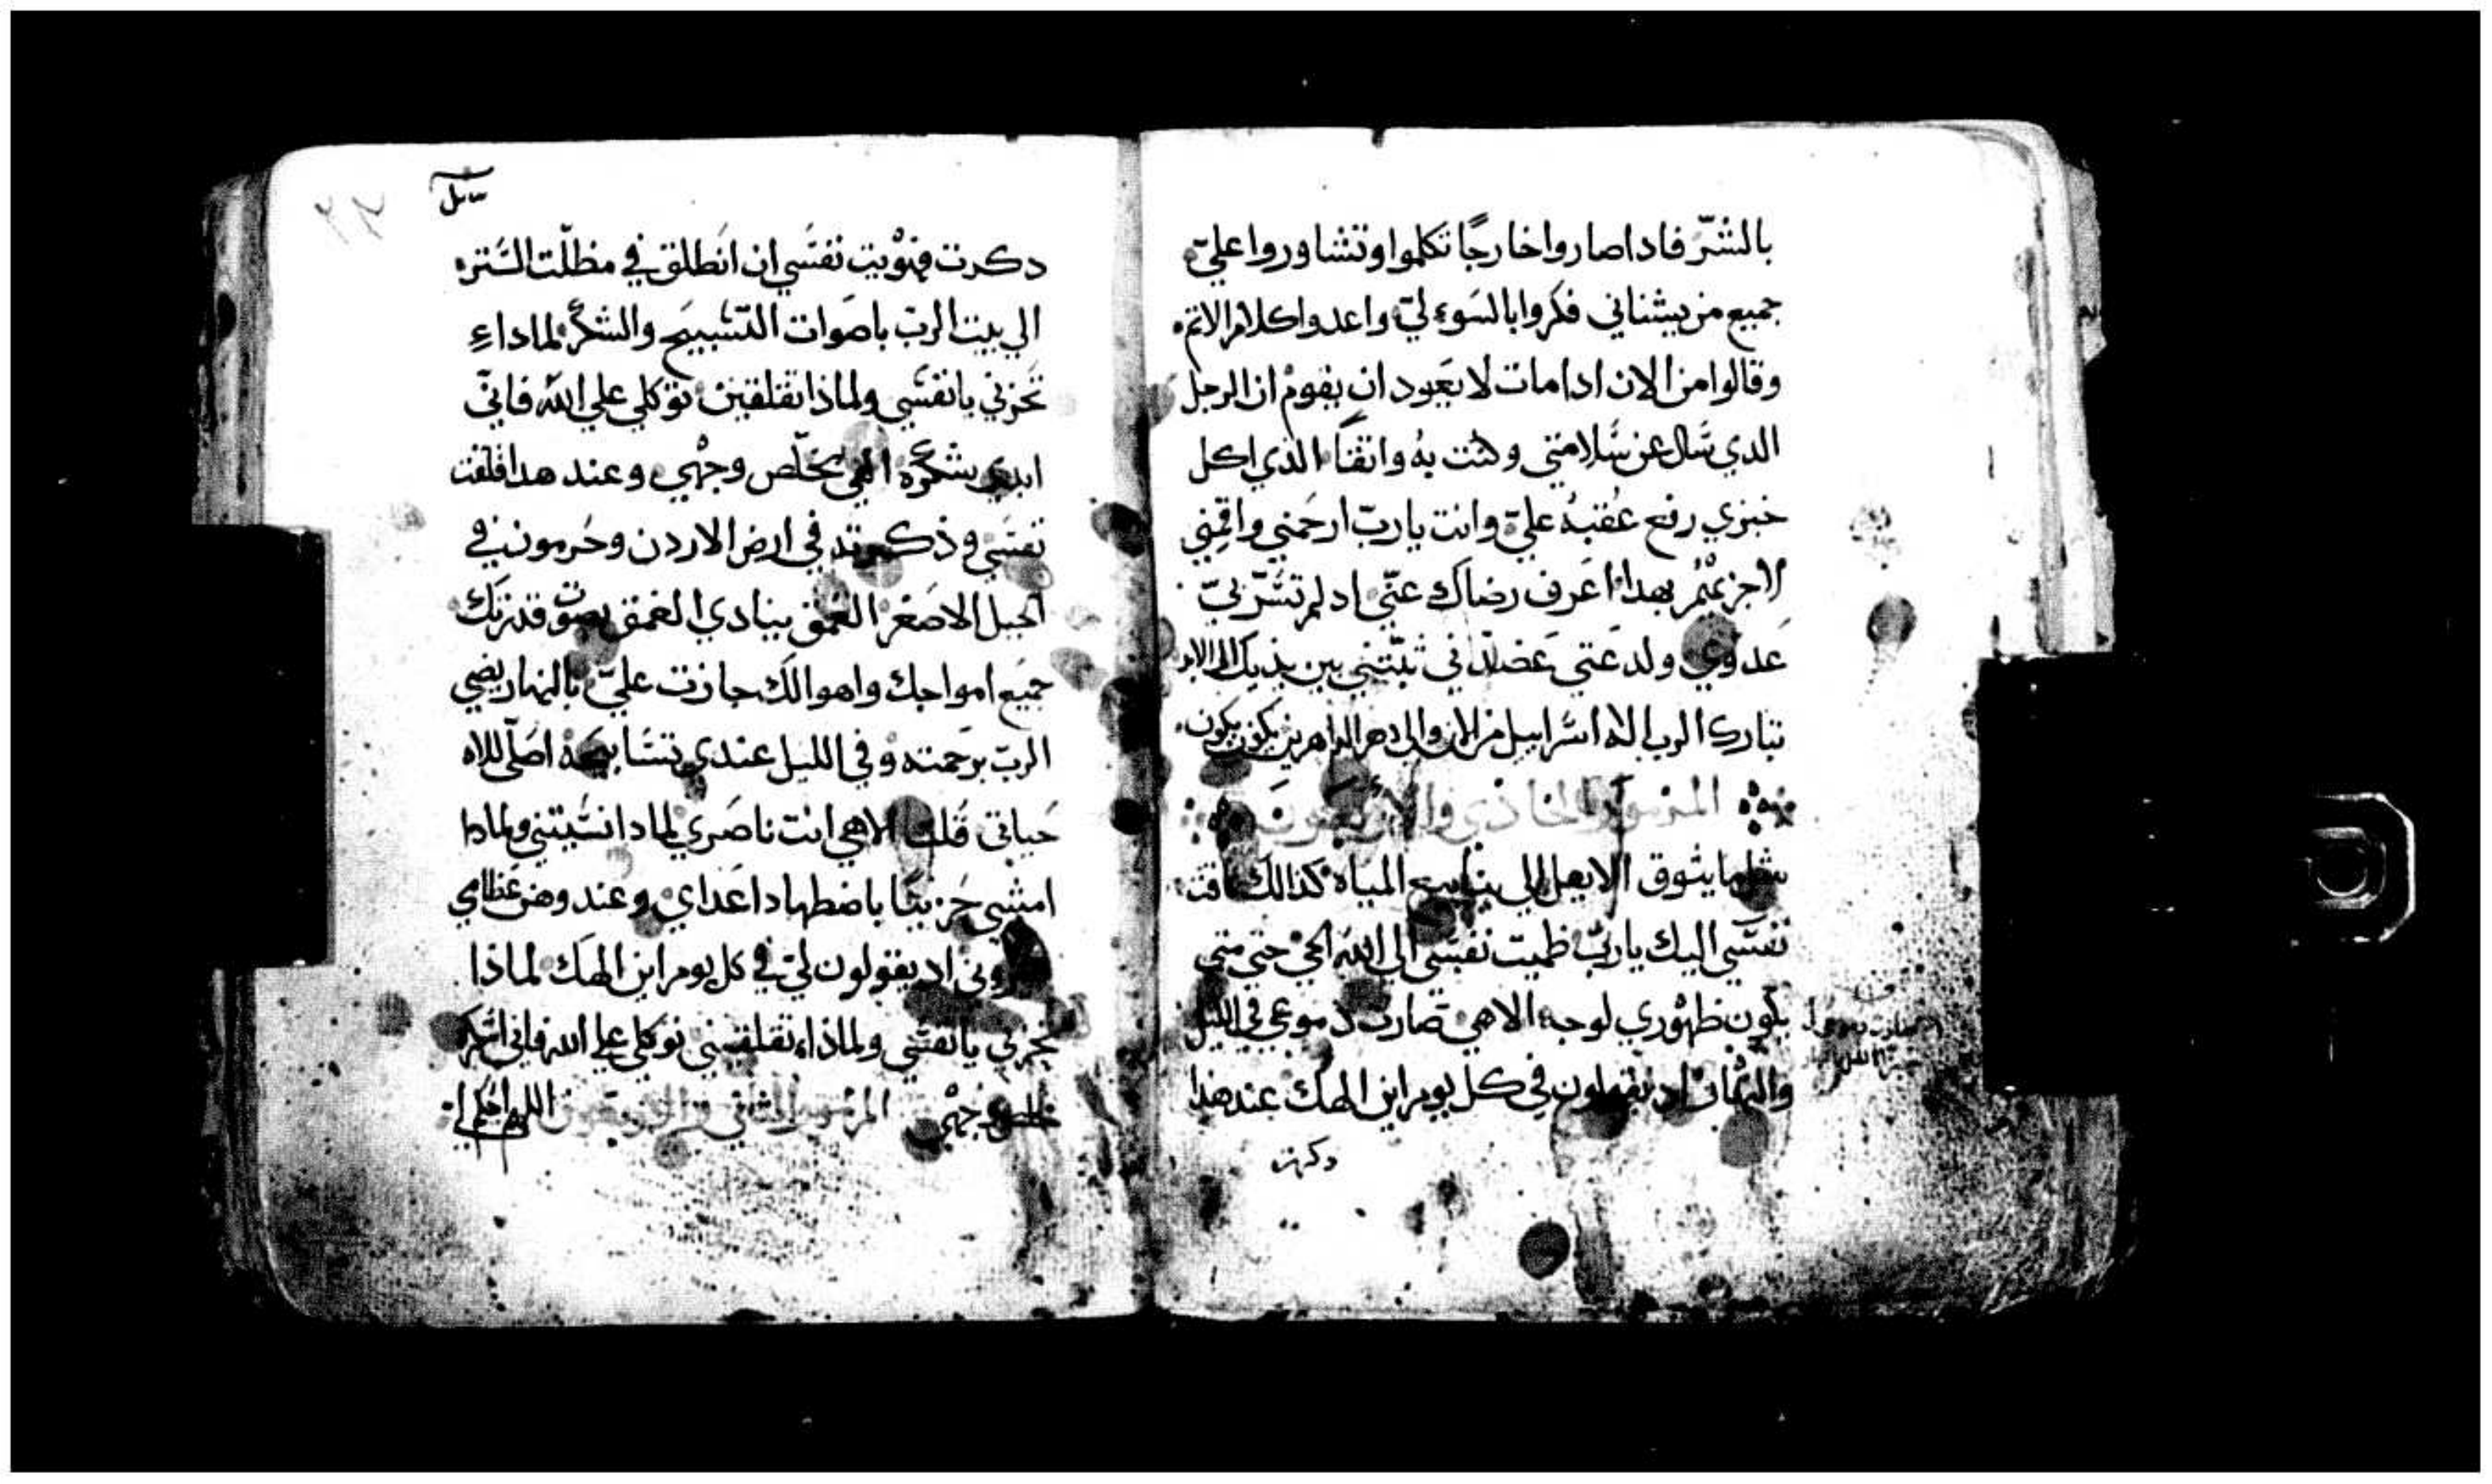 بالشرّ فادا صاروا خارجًا تكلموا وتشاوروا عليّ
جميع من يشناني فكروا بالسوء ليّ واعدوا كلام الاثم
وقالوا من الان ادا مات لا يعود ان يقوم ان الرجل
الدي سال عن سلامتي وكنت به واثقًا الذي اكل
خبزي رفع عقبهُ عليّ وانت يا ربّ ارحمني واقمني
لاجزيهُم بهدا اعرف رضاك عنّي اد لم تسّر بيّ
عدوّي ولدعتي عضدتني ثبّتني بين يديك الي الابد
تبارك الرب اله اسرابيل من الان والي دهر الداهرين يكون يكون
المزمور الحادي والاربعون
مثلما يشوق الايل الي ينابيع المياه كذالك تاقت
نفسي اليك يا ربّ ظميت نفسي الي الله الحي حتي متي
يكون ظهوري لوجه الاهي صارت دموعي في الليل
والنهار اد يقولون في كل يوم اين الهك عند هذا
دكرت
دكرت فهويت نفسي ان انطلق في مظلّت الستره
الي بيت الرب باصوات التسبيح والشكر لماداء
تحزني يا نفسي ولماذا تقلقين توكلي علي الله فانّي
ابدي بشكره الهي مخلّص وجهي وعند هدا قلقت
نفسي وذكرتك في ارض الاردن وحرمون في
الجبل الاصغر العمق ينادي العمق بصوت قدرتك
جميع امواجك واهوالك جازت عليّ بالنهار يضي
الربّ برحمته وفي الليل عندي تسابيحهُ اصلّي للاه
حياتي قلت الاهي انت ناصري لمادا نسيتني ولمادا
امشي حزينًا باضطهاد اعداي وعند وهن عظامي
اد يقولون ليّ في كل يوم اين الهك لماذا
تحزني يا نفسي ولماذا تقلقيني توكلي علي الله فاني اشكر
مخلص وجهي المزمور الثاني والاربعون اللهم احكم لي